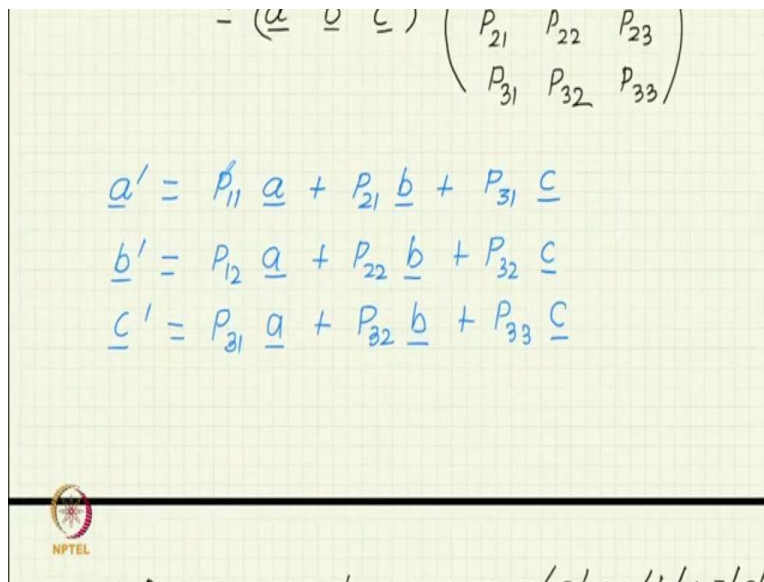 = (a b c) ( P21 P22 P23
P31 P32 P33 )
a' = P11 a + P21 b + P31 c
b' = P12 a + P22 b + P32 c
c' = P31 a + P32 b + P33 c
NPTEL